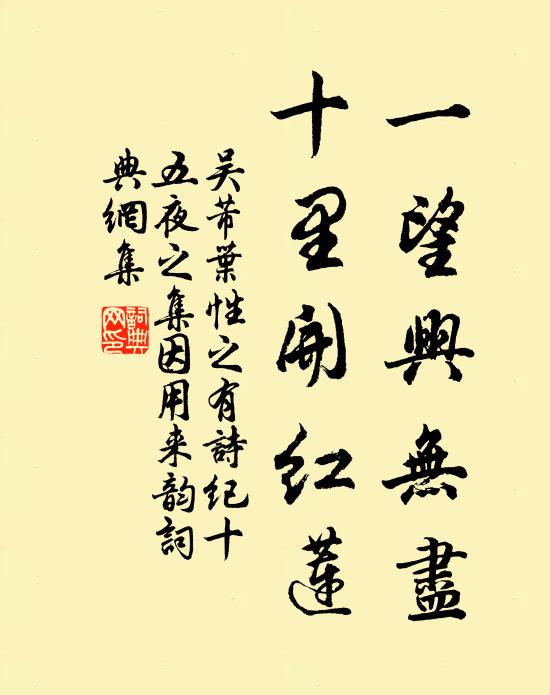 一望興無盡
十里開紅蓮
吴芾葉性之有詩紀十
五夜之集因用来韵詞
典網集
詞典網印